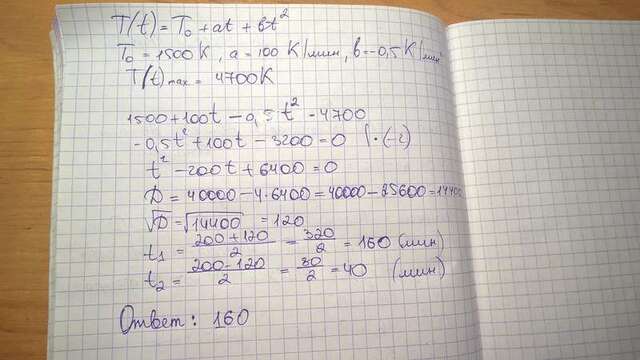 T(t) = T₀ + at + bt²
T₀ = 1500K, a = 100 K/мин, b = -0,5 K/мин²
T(t)max = 4700K
1500+100t - 0,5t² - 4700
-0,5t² + 100t - 3200 = 0 | · (-2)
t² - 200t + 6400 = 0
D = 40000 - 4·6400 = 40000 - 25600 = 14400
√D = √14400 = 120
t₁ = (200+120)/2 = 320/2 = 160 (мин)
t₂ = (200-120)/2 = 80/2 = 40 (мин)
Ответ: 160